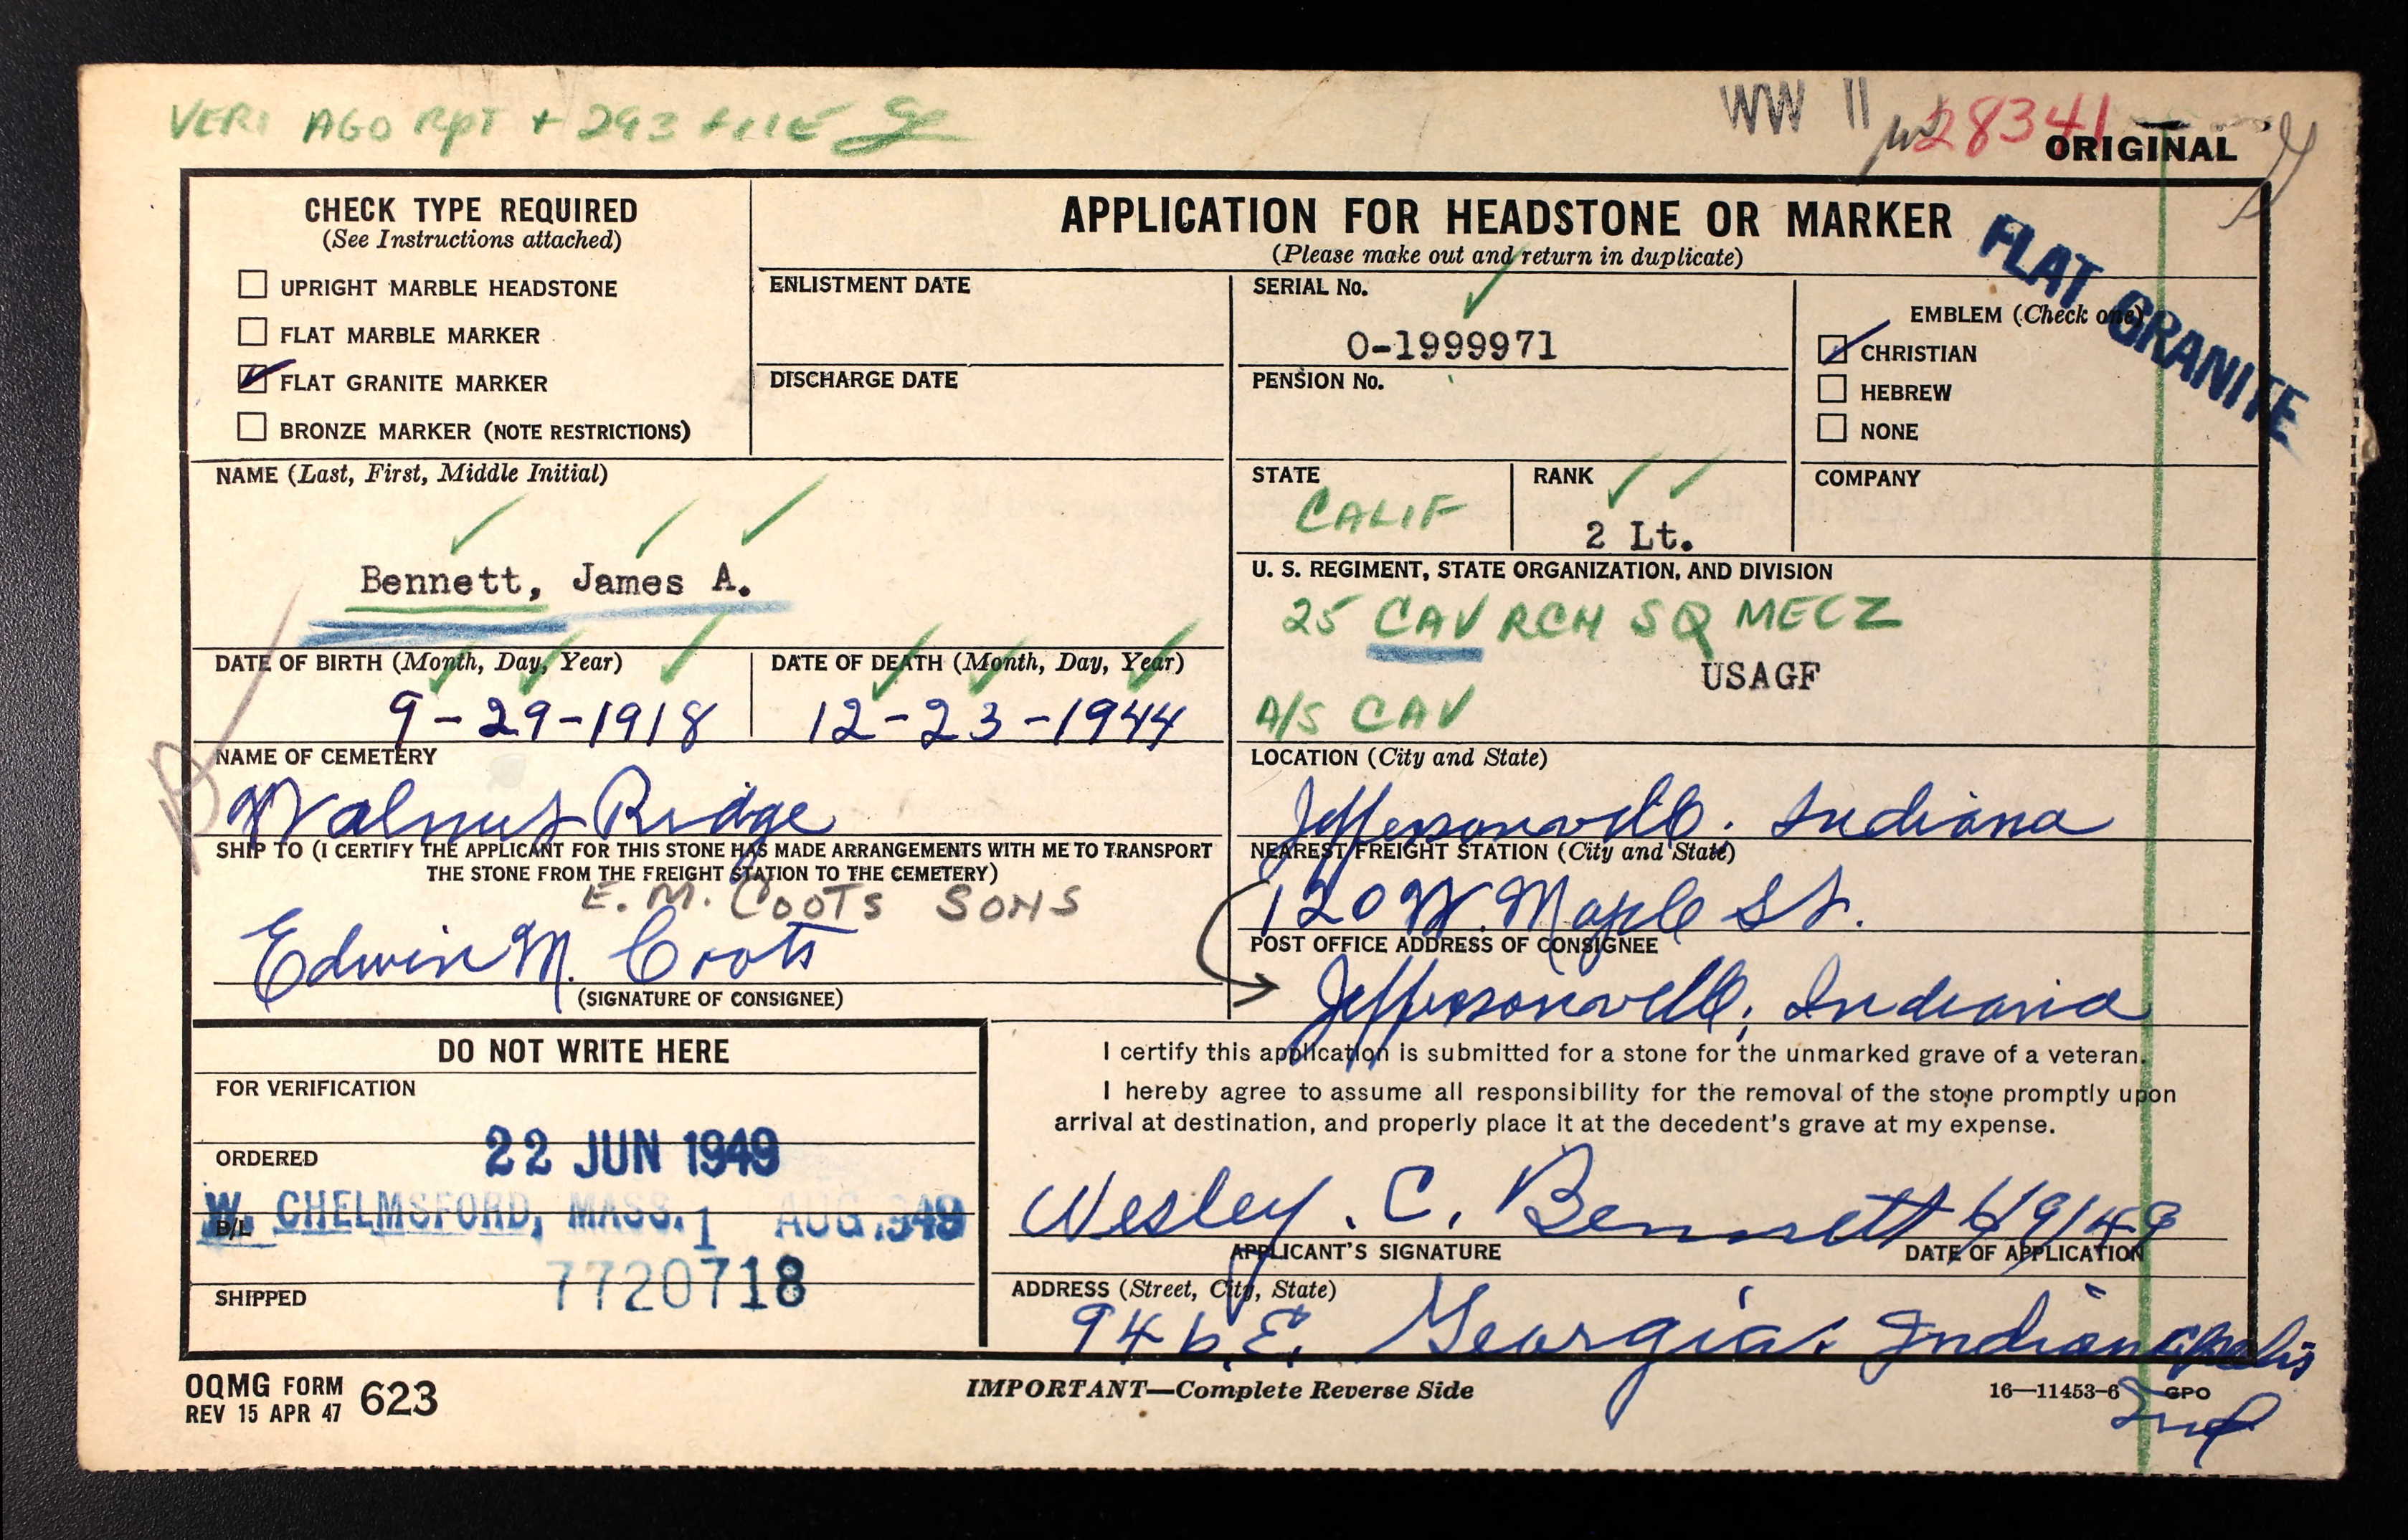 VERI AGO RPT + 293 FILE
WW II
28341
ORIGINAL
CHECK TYPE REQUIRED
(See Instructions attached)
UPRIGHT MARBLE HEADSTONE
FLAT MARBLE MARKER
FLAT GRANITE MARKER
BRONZE MARKER (NOTE RESTRICTIONS)
APPLICATION FOR HEADSTONE OR MARKER
(Please make out and return in duplicate)
FLAT GRANITE
ENLISTMENT DATE
DISCHARGE DATE
SERIAL No.
O-1999971
PENSION No.
EMBLEM (Check one)
CHRISTIAN
HEBREW
NONE
NAME (Last, First, Middle Initial)
Bennett, James A.
STATE
CALIF
RANK
2 Lt.
COMPANY
U. S. REGIMENT, STATE ORGANIZATION, AND DIVISION
25 CAV RCN SQ MECZ
USAGF
A/S CAV
DATE OF BIRTH (Month, Day, Year)
9-29-1918
DATE OF DEATH (Month, Day, Year)
12-23-1944
NAME OF CEMETERY
Walnut Ridge
LOCATION (City and State)
Jeffersonville. Indiana
SHIP TO (I CERTIFY THE APPLICANT FOR THIS STONE HAS MADE ARRANGEMENTS WITH ME TO TRANSPORT
THE STONE FROM THE FREIGHT STATION TO THE CEMETERY)
E. M. COOTS SONS
Edwin M. Coots
(SIGNATURE OF CONSIGNEE)
NEAREST FREIGHT STATION (City and State)
120 W. Maple St.
POST OFFICE ADDRESS OF CONSIGNEE
Jeffersonville, Indiana
DO NOT WRITE HERE
FOR VERIFICATION
ORDERED
22 JUN 1949
W. CHELMSFORD, MASS. 1 AUG. 1949
B/L
7720718
SHIPPED
I certify this application is submitted for a stone for the unmarked grave of a veteran.
I hereby agree to assume all responsibility for the removal of the stone promptly upon
arrival at destination, and properly place it at the decedent's grave at my expense.
Wesley. C. Bennett 6/9/49
APPLICANT'S SIGNATURE
DATE OF APPLICATION
ADDRESS (Street, City, State)
946 E. Georgia. Indianapolis
Ind
OQMG FORM 623
REV 15 APR 47
IMPORTANT—Complete Reverse Side
16—11453-6 GPO